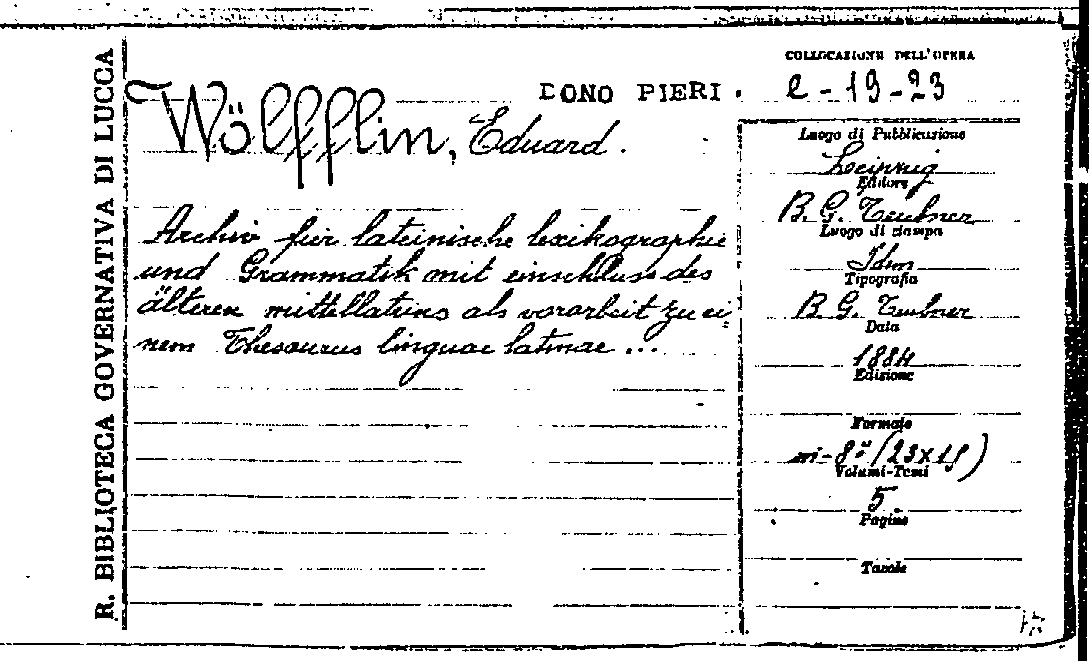 R. BIBLIOTECA GOVERNATIVA DI LUCCA
DONO PIERI.
Wölfflin, Eduard.
Archiv für lateinische lexikographie
und Grammatik mit einschluss des
älteren mittellateins als vorarbeit zu ei-
nem Thesaurus linguae latinae ...
COLLOCAZIONE DELL'OPERA
e-19-23
Luogo di Pubblicazione
Leipzig
Editore
B. G. Teubner
Luogo di stampa
Idem
Tipografia
B. G. Teubner
Data
1884
Edizione
Formato
in-8º (23x15)
Volumi-Tomi
5
Pagine
Tavole